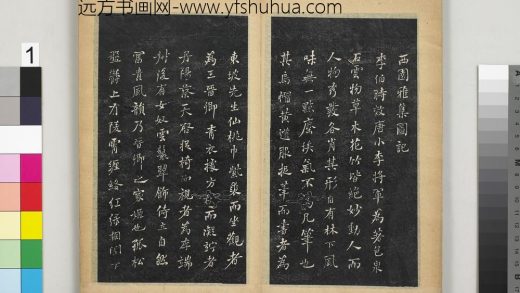 远方书画网-www.yfshuhua.com
1
西園雅集圖記
李伯時效唐小李將軍為著色泉
石雲物草木花竹皆絕妙動人而
人物秀發各肖其形自有林下風
味無一點塵埃氣不為凡筆也
其烏帽黃道服捉筆而書者為
東坡先生仙桃巾紫裘而坐觀者
為王晉卿青衣據方几而凝竚者
丹陽蔡天啓捉椅而視者為李端
叔後有女奴雲鬟翠飾侍立自然
富貴風韻乃晉卿之家姬也孤松
盤鬱上有凌霄纏絡紅綠相間下